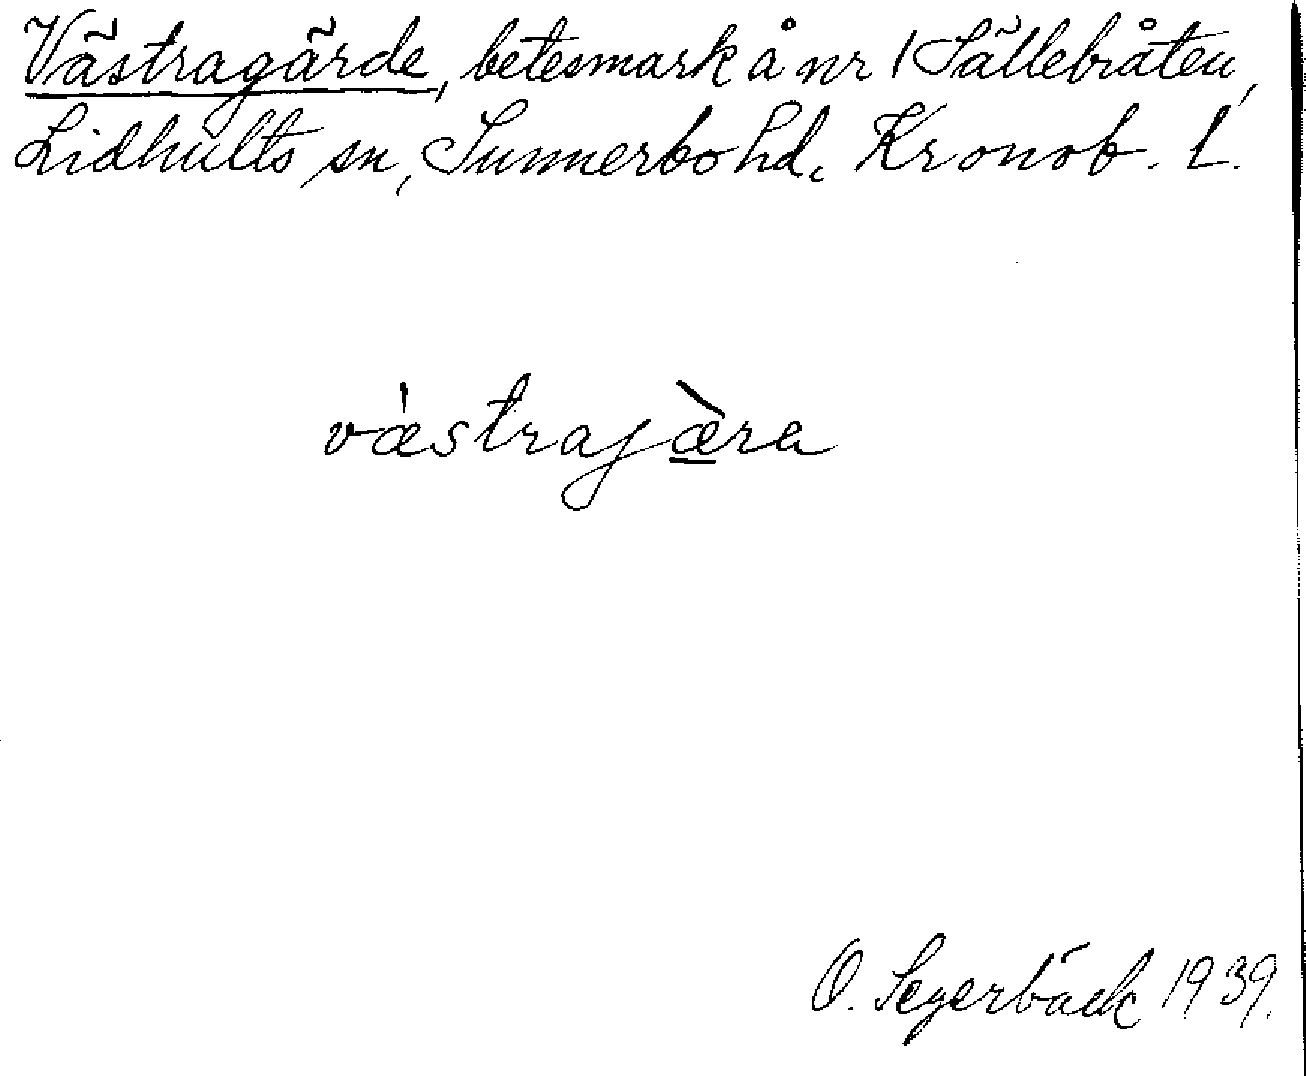 Västragärde, betesmark å nr 1 Sällebråten,
Lidhults sn, Sunnerbo hd. Kronob. L.
væ̍strajæ̠̀ra
O. Segerbäck 1939.